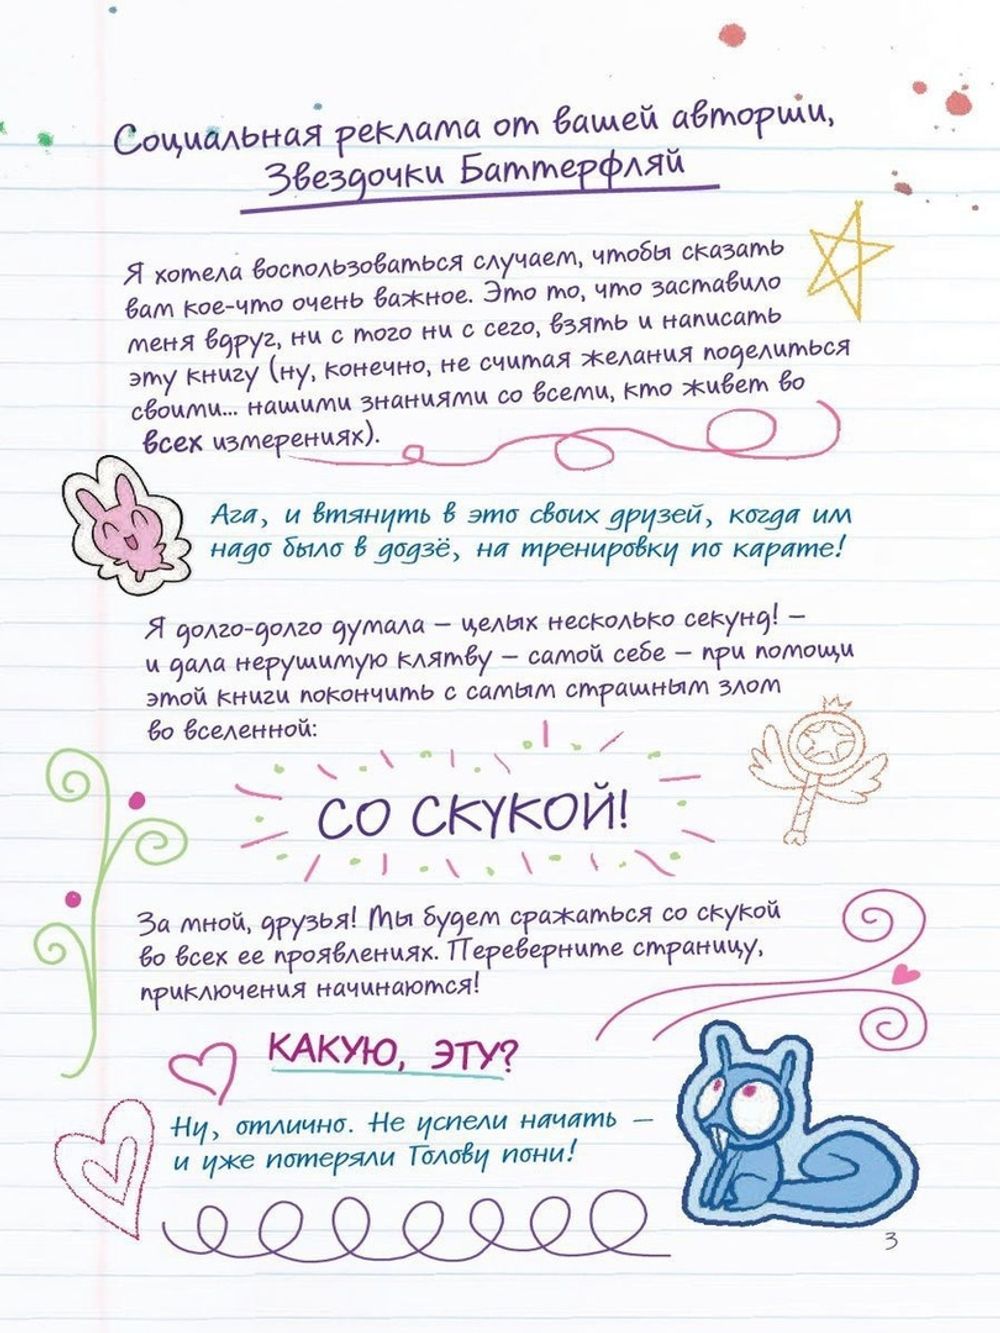 Социальная реклама от вашей авторши,
Звездочки Баттерфляй
Я хотела воспользоваться случаем, чтобы сказать
вам кое-что очень важное. Это то, что заставило
меня вдруг, ни с того ни с сего, взять и написать
эту книгу (ну, конечно, не считая желания поделиться
своими... нашими знаниями со всеми, кто живет во
всех измерениях).
Ага, и втянуть в это своих друзей, когда им
надо было в додзё, на тренировку по карате!
Я долго-долго думала – целых несколько секунд! –
и дала нерушимую клятву – самой себе – при помощи
этой книги покончить с самым страшным злом
во вселенной:
СО СКУКОЙ!
За мной, друзья! Мы будем сражаться со скукой
во всех ее проявлениях. Переверните страницу,
приключения начинаются!
КАКУЮ, ЭТУ?
Ну, отлично. Не успели начать –
и уже потеряли Голову пони!
3